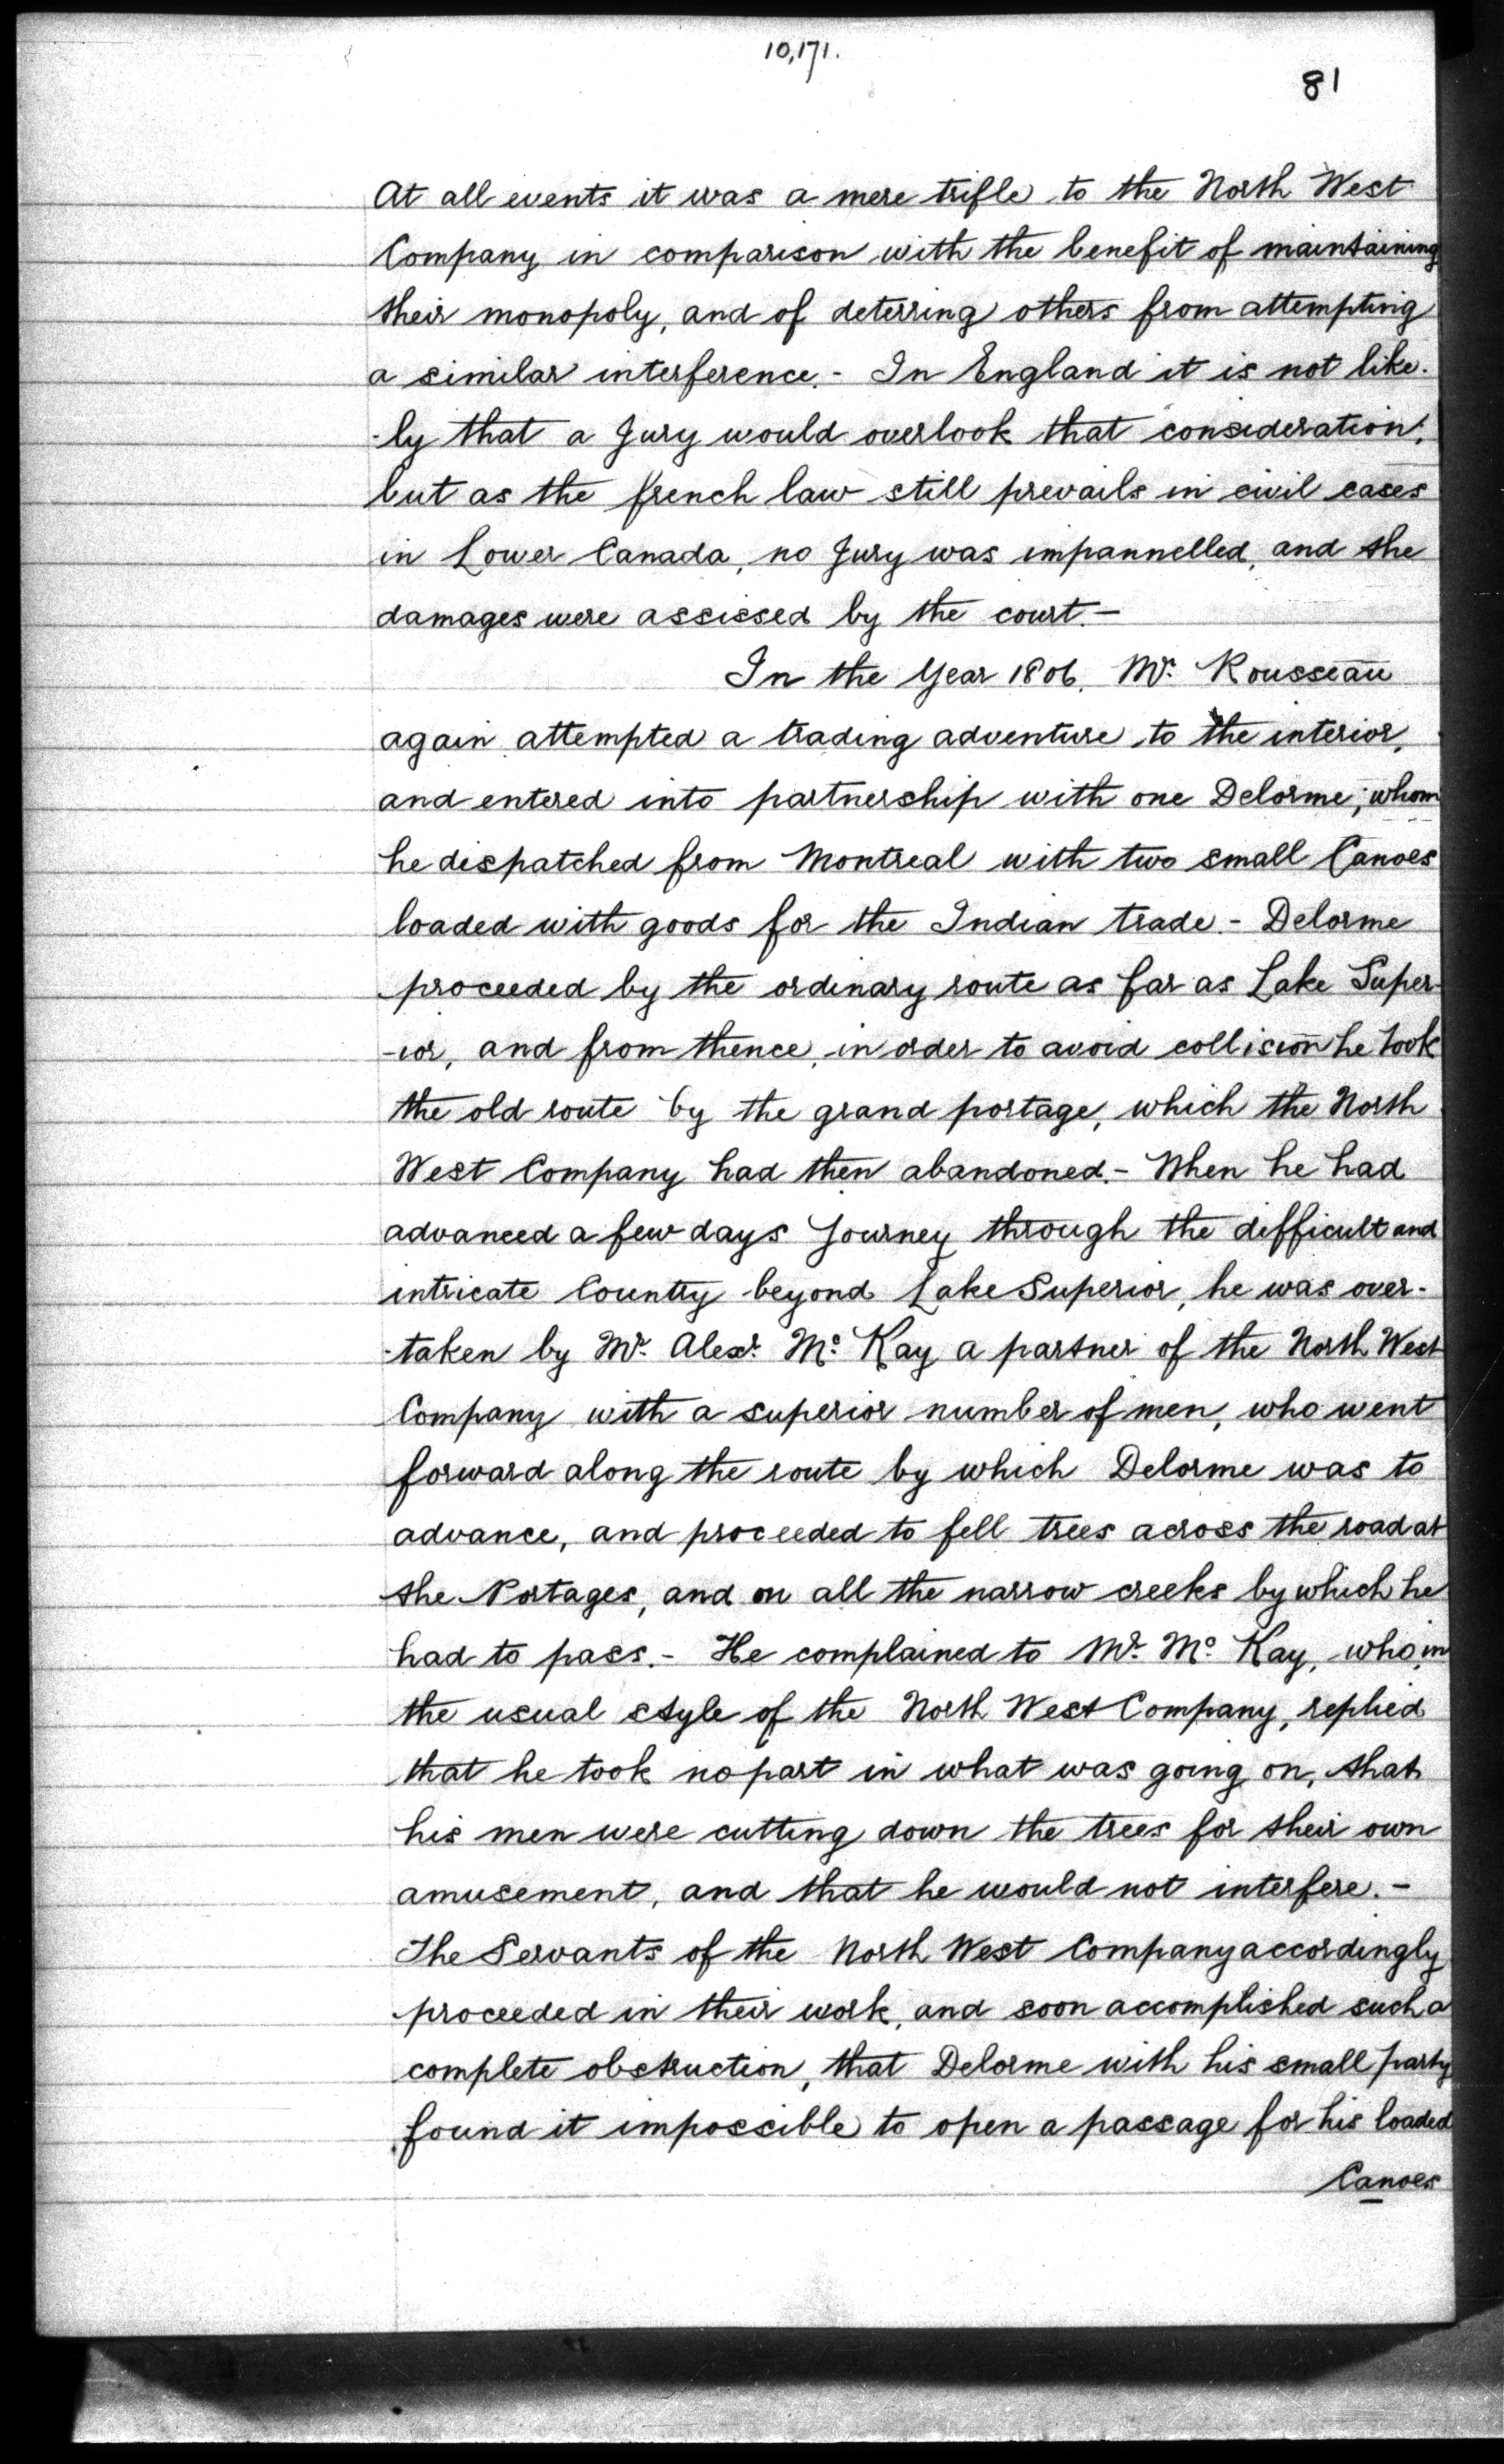 10,171.
81
At all events it was a mere trifle to the North West
Company in comparison with the benefit of maintaining
their monopoly, and of deterring others from attempting
a similar interference.- In England it is not like-
-ly that a Jury would overlook that consideration;
but as the french law still prevails in civil cases
in Lower Canada, no Jury was impannelled, and the
damages were assissed by the court.-
In the Year 1806, Mr. Rousseau
again attempted a trading adventure to the interior,
and entered into partnership with one Delorme; whom
he dispatched from Montreal with two small Canoes
loaded with goods for the Indian trade.- Delorme
proceeded by the ordinary route as far as Lake Super-
-ior, and from thence, in order to avoid collision he took
the old route by the grand portage, which the North
West Company had then abandoned.- When he had
advanced a few days Journey through the difficult and
intricate Country beyond Lake Superior, he was over-
-taken by Mr. Alexr. Mc Kay a partner of the North West
Company with a superior number of men, who went
forward along the route by which Delorme was to
advance, and proceeded to fell trees across the road at
the Portages, and on all the narrow creeks by which he
had to pass.- He complained to Mr. Mc Kay, who, in
the usual style of the North West Company, replied
that he took no part in what was going on, that
his men were cutting down the trees for their own
amusement, and that he would not interfere.-
The Servants of the North West Company accordingly
proceeded in their work, and soon accomplished such a
complete obstruction, that Delorme with his small party
found it impossible to open a passage for his loaded
Canoes